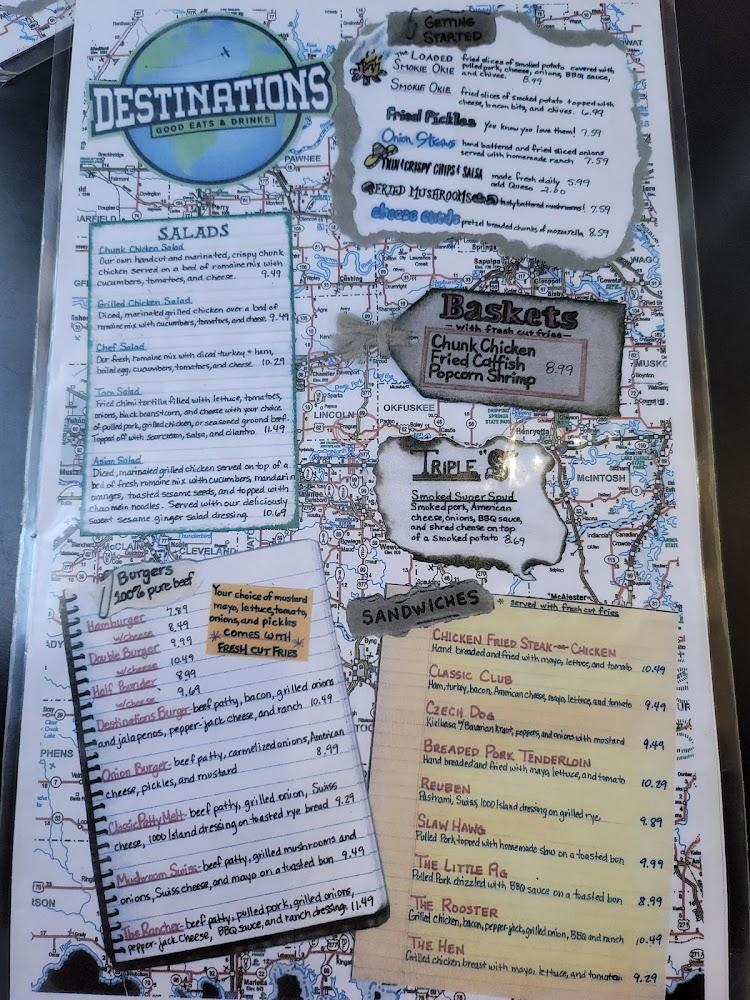 DESTINATIONS
GOOD EATS & DRINKS
GETTING
STARTED
THE LOADED
SMOKIE OKIE
fried slices of smoked potato covered with
pulled pork, cheese, onions, BBQ sauce,
and chives. 8.99
SMOKIE OKIE
fried slices of smoked potato topped with
cheese, bacon bits, and chives. 6.99
Fried Pickles You know you love them! 7.59
Onion Straws hand battered and fried sliced onions
served with homemade ranch 7.59
THIN & CRISPY CHIPS & SALSA made fresh daily 5.99
add Queso 2.60
FRIED MUSHROOMS tasty battered mushrooms! 7.59
cheese curds pretzel breaded chunks of mozzarella 8.59
SALADS
Chunk Chicken Salad
Our own handcut and marinated, crispy chunk
chicken served on a bed of romaine mix with
cucumbers, tomatoes, and cheese. 9.49
Grilled Chicken Salad
Diced, marinated grilled chicken over a bed of
romaine mix with cucumbers, tomatoes, and cheese. 9.49
Chef Salad
Our fresh romaine mix with diced turkey + ham,
boiled egg, cucumbers, tomatoes, and cheese 10.29
Taco Salad
Fried chimi tortilla filled with lettuce, tomatoes,
onions, black beans & corn, and cheese with your choice
of pulled pork, grilled chicken, or seasoned ground beef.
Topped off with sour cream, salsa, and cilantro 11.49
Asian Salad
Diced, marinated grilled chicken served on top of a
bed of fresh romaine mix with cucumbers, mandarin
oranges, toasted sesame seeds, and topped with
chow mein noodles. Served with our deliciously
sweet sesame ginger salad dressing. 10.69
Baskets
-with fresh cut fries-
Chunk Chicken
Fried Catfish 8.99
Popcorn Shrimp
TRIPLE "S"
Smoked Super Spud
Smoked pork, American
cheese, onions, BBQ sauce,
and shred cheese on top
of a smoked potato 8.69
Burgers
100% pure beef
Your choice of mustard
mayo, lettuce, tomato,
onions, and pickles
COMES WITH
FRESH CUT FRIES
Hamburger 7.89
w/cheese 8.49
Double Burger 9.99
w/cheese 10.49
Half Pounder 8.99
w/cheese 9.69
Destinations Burger- beef patty, bacon, grilled onions
and jalapenos, pepper-jack cheese, and ranch 10.49
Onion Burger- beef patty, carmelized onions, American
cheese, pickles, and mustard 8.99
Classic Patty Melt- beef patty, grilled onion, Swiss
cheese, 1000 Island dressing on toasted rye bread 9.29
Mushroom Swiss- beef patty, grilled mushrooms and
onions, Swiss cheese, and mayo on a toasted bon 9.49
The Rancher- beef patty, pulled pork, grilled onions,
pepper-jack Cheese, BBQ sauce, and ranch dressing. 11.49
SANDWICHES
* served with fresh cut fries
CHICKEN FRIED STEAK -OR- CHICKEN
Hand breaded and fried with mayo, lettuce, and tomato 10.49
CLASSIC CLUB
Ham, turkey, bacon, American cheese, mayo, lettuce, and tomato 9.49
CZECH DOG
Kielbasa w/ Bavarian kraut, peppers, and onions with mustard 9.49
BREADED PORK TENDERLOIN
Hand breaded and fried with mayo, lettuce, and tomato 10.29
REUBEN
Pastrami, Swiss, 1000 Island dressing on grilled rye 9.89
SLAW HAWG
Pulled Pork topped with homemade slaw on a toasted bon 9.99
THE LITTLE PIG
Pulled Pork drizzled with BBQ sauce on a toasted bon 8.99
THE ROOSTER
Grilled chicken, bacon, pepper-jack, grilled onion, BBQ and ranch 10.49
THE HEN
Grilled chicken breast with mayo, lettuce, and tomato 9.29
PAWNEE
LINCOLN
OKFUSKEE
McINTOSH
CLEVELAND
McAlester
Sapulpa
Henryetta